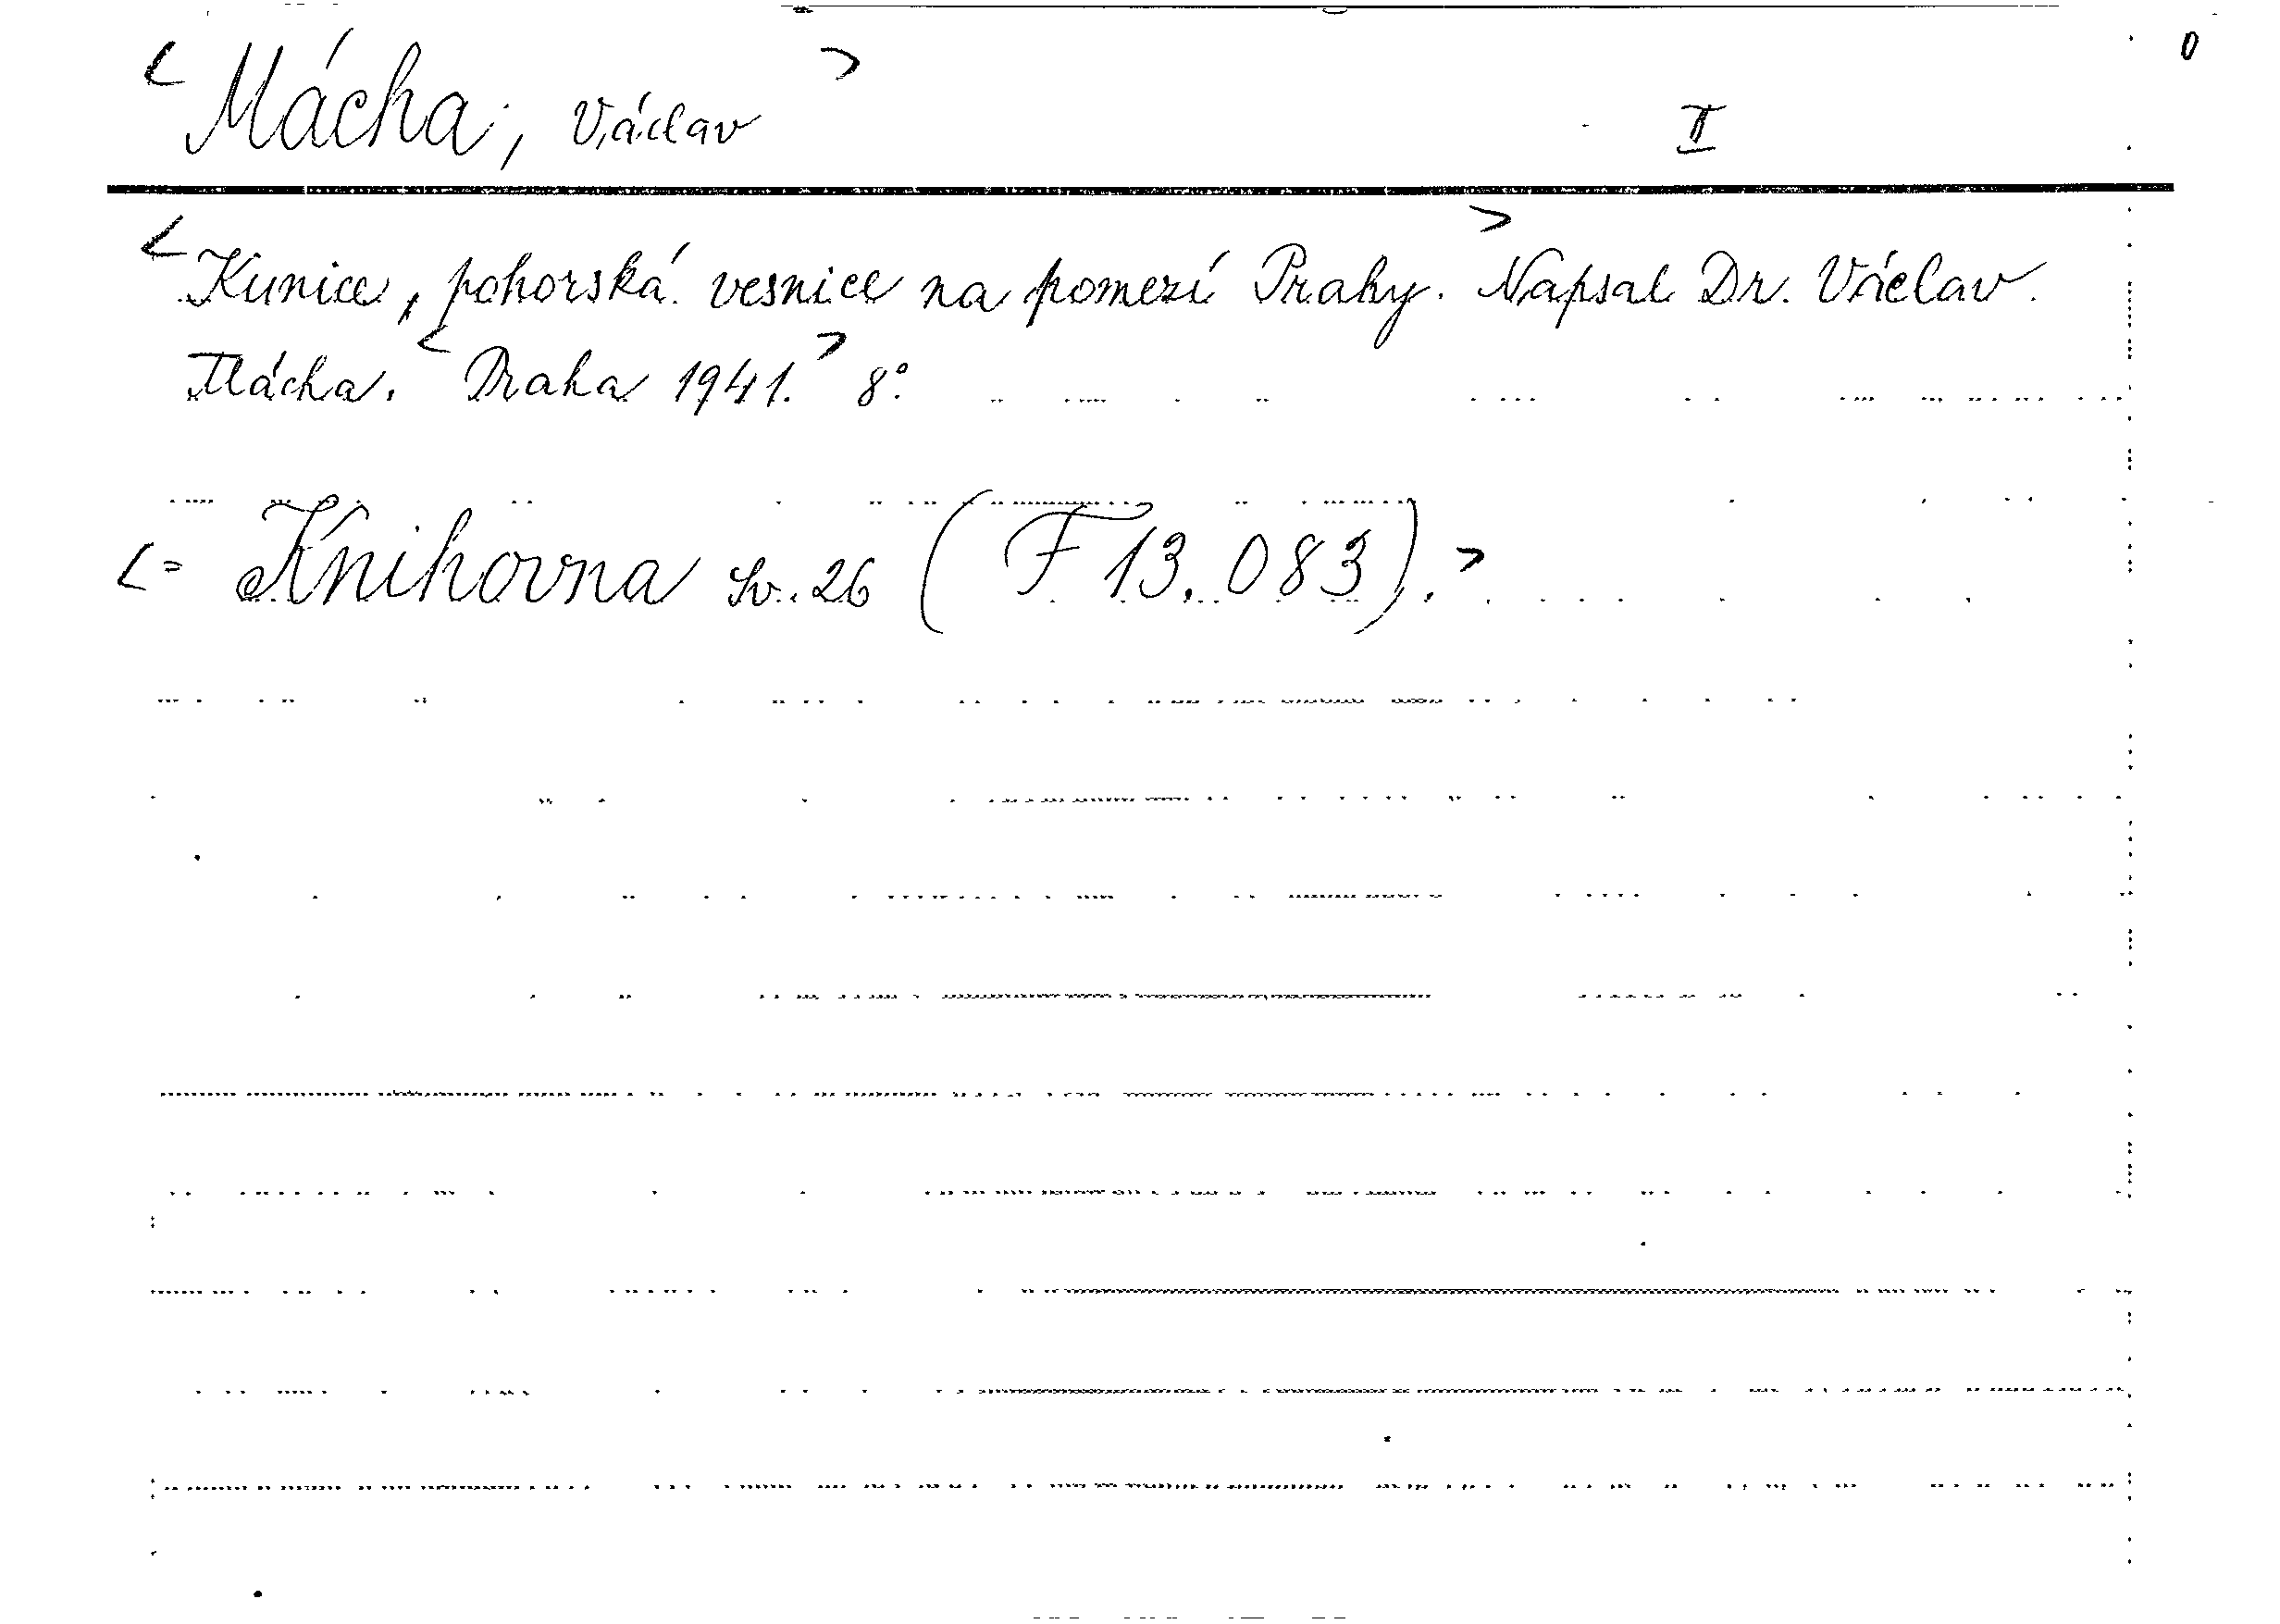 0
<Mácha, Václav> II
<Kunice, pohorská vesnice na pomezí Prahy.> Napsal Dr. Václav
Mácha. <Praha 1941.> 8°.
<= Knihovna sv. 26 (F 13.083).>